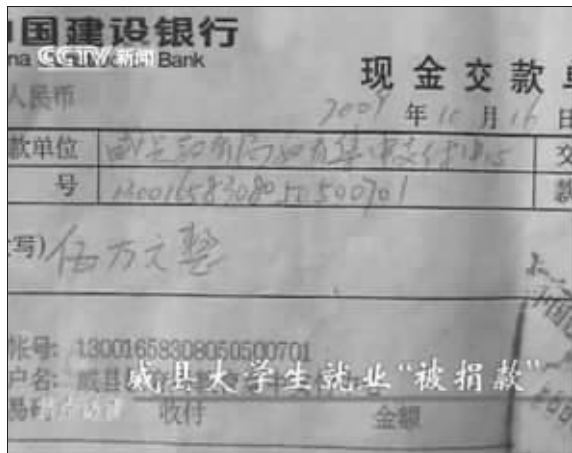 中国建设银行
CCTV 新闻
Bank
现金交款单
人民币
2009 年 10 月 16 日
款单位 威县财政局财政集中支付中心
交
号 13001658308050500701
款
写) 伍万元整
帐号: 13001658308050500701
户名: 威县
威县大学生就业“被捐款”
易码 收付 金额